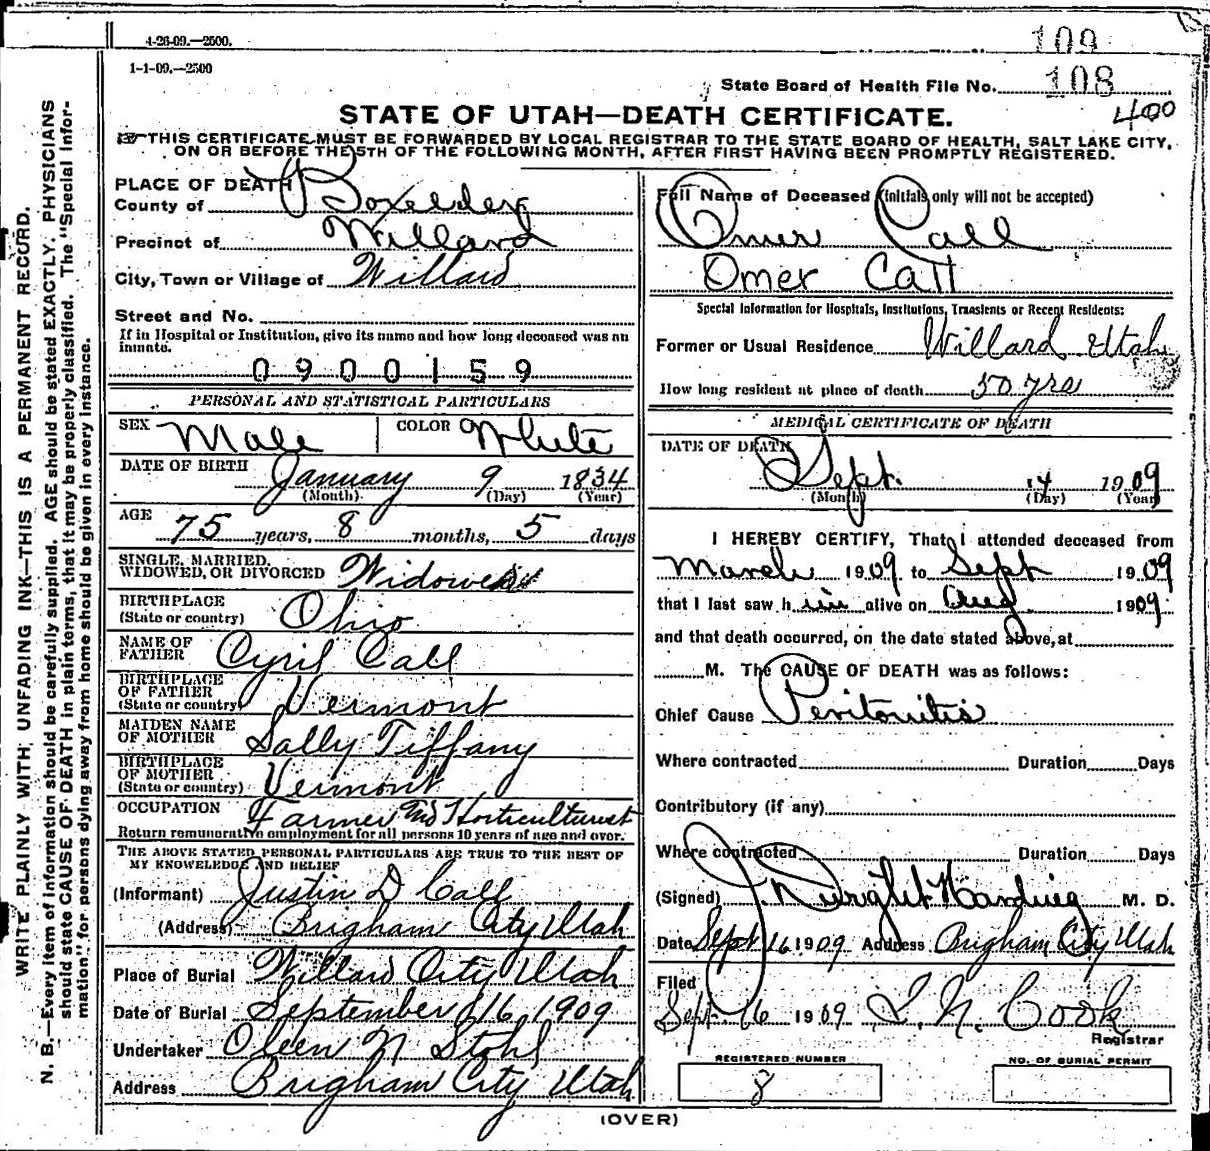 4-26-09.—2500.
1-1-09.—2500
109
State Board of Health File No. 108
400
STATE OF UTAH—DEATH CERTIFICATE.
THIS CERTIFICATE MUST BE FORWARDED BY LOCAL REGISTRAR TO THE STATE BOARD OF HEALTH, SALT LAKE CITY,
ON OR BEFORE THE 5TH OF THE FOLLOWING MONTH, AFTER FIRST HAVING BEEN PROMPTLY REGISTERED.
WRITE PLAINLY WITH UNFADING INK—THIS IS A PERMANENT RECORD.
N. B.—Every item of information should be carefully supplied. AGE should be stated EXACTLY. PHYSICIANS
should state CAUSE OF DEATH in plain terms, that it may be properly classified. The "Special Infor-
mation" for persons dying away from home should be given in every instance.
PLACE OF DEATH
County of Boxelder
Precinct of Willard
City, Town or Village of Willard
Street and No.
If in Hospital or Institution, give its name and how long deceased was an
inmate.
0900159
PERSONAL AND STATISTICAL PARTICULARS
SEX Male COLOR White
DATE OF BIRTH January 9 1834
(Month) (Day) (Year)
AGE 75 years, 8 months, 5 days
SINGLE, MARRIED,
WIDOWED, OR DIVORCED Widowed
BIRTHPLACE
(State or country) Ohio
NAME OF
FATHER Cyril Call
BIRTHPLACE
OF FATHER
(State or country) Vermont
MAIDEN NAME
OF MOTHER Sally Tiffany
BIRTHPLACE
OF MOTHER
(State or country) Vermont
OCCUPATION Farmer and Horticulturist
Return remunerative employment for all persons 10 years of age and over.
THE ABOVE STATED PERSONAL PARTICULARS ARE TRUE TO THE BEST OF
MY KNOWLEDGE AND BELIEF
(Informant) Justin D Call
(Address) Brigham City Utah
Place of Burial Willard City Utah
Date of Burial September 16 1909
Undertaker Oleen N Stohl
Address Brigham City Utah
Full Name of Deceased (initials only will not be accepted)
Omer Call
Omer Call
Special Information for Hospitals, Institutions, Transients or Recent Residents:
Former or Usual Residence Willard Utah
How long resident at place of death 50 yrs
MEDICAL CERTIFICATE OF DEATH
DATE OF DEATH
Sept. 14 1909
(Month) (Day) (Year)
I HEREBY CERTIFY, That I attended deceased from
March 1909 to Sept 1909
that I last saw him alive on Aug 1909
and that death occurred, on the date stated above, at
M. The CAUSE OF DEATH was as follows:
Chief Cause Peritonitis
Where contracted Duration Days
Contributory (if any)
Where contracted Duration Days
(Signed) J. Dwight Harding M. D.
Date Sept 16 1909 Address Brigham City Utah
Filed
Sept. 16 1909 L. N. Cook
Registrar
REGISTERED NUMBER
8
NO. OF BURIAL PERMIT
(OVER)